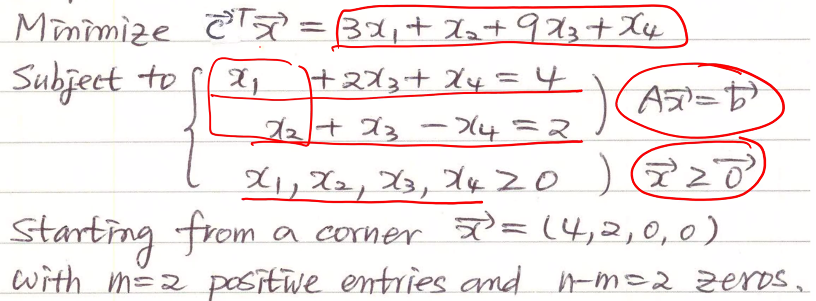 Minimize c⃗ᵀx⃗ = 3x₁ + x₂ + 9x₃ + x₄
Subject to { x₁ + 2x₃ + x₄ = 4 ) Ax⃗ = b⃗
x₂ + x₃ − x₄ = 2
x₁, x₂, x₃, x₄ ≥ 0 ) x⃗ ≥ 0⃗
Starting from a corner x⃗ = (4, 2, 0, 0)
with m=2 positive entries and n−m=2 zeros.